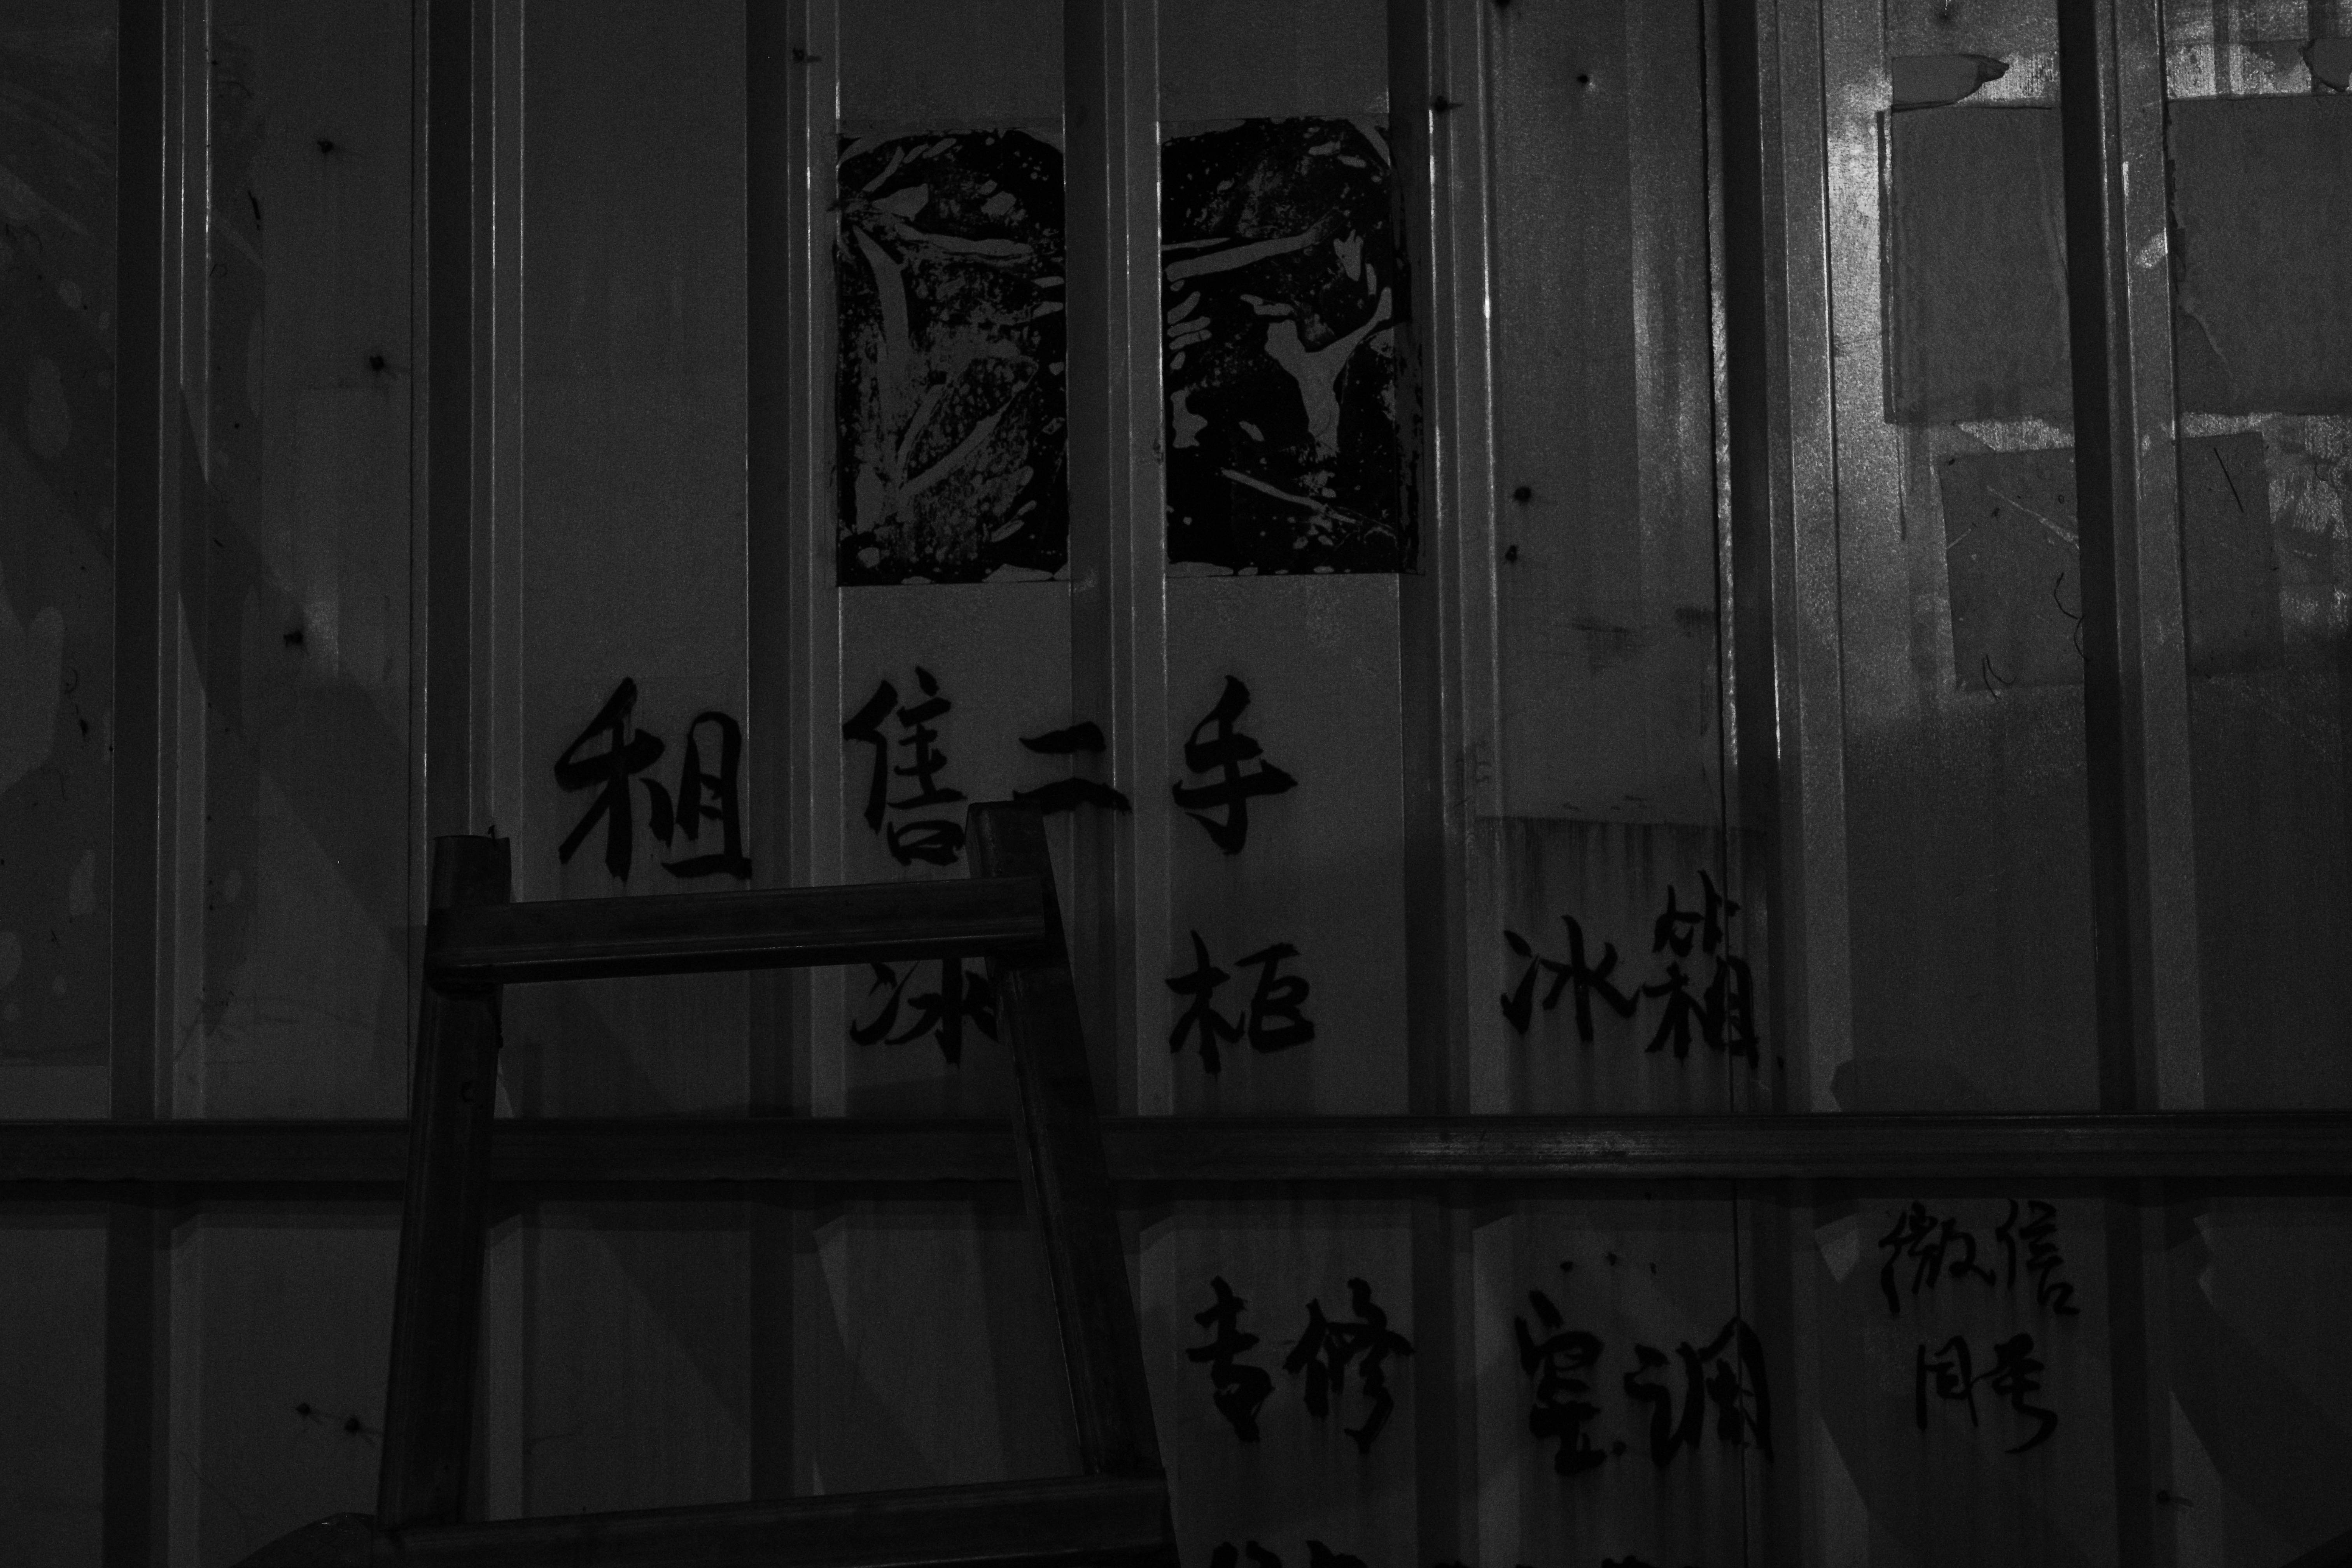 租售二手
冰柜 冰箱
专修空调
微信
同号